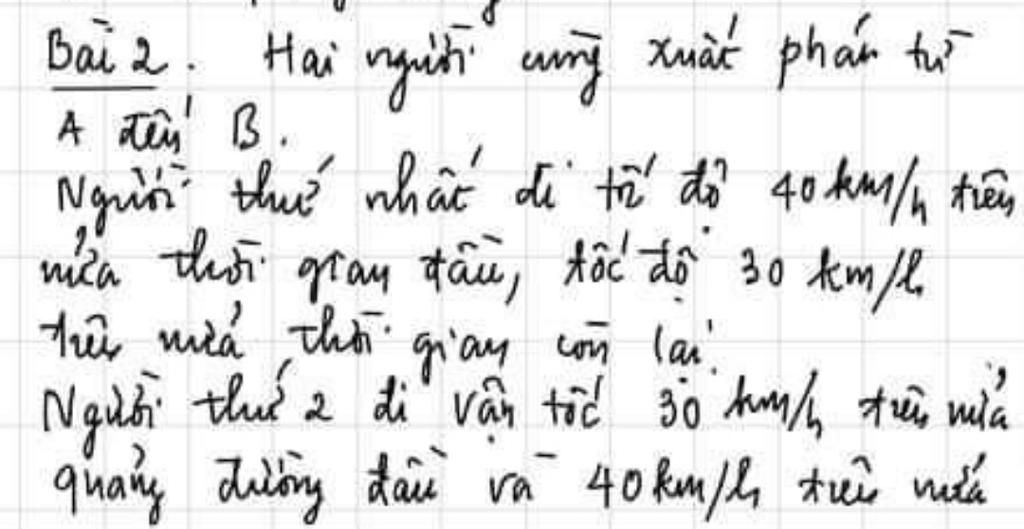 Bài 2. Hai người cùng xuất phát từ
A đến B.
Người thứ nhất đi tốc độ 40 km/h trên
nửa thời gian đầu, tốc độ 30 km/h
trên nửa thời gian còn lại.
Người thứ 2 đi vận tốc 30 km/h trên nửa
quãng đường đầu và 40 km/h trên nửa